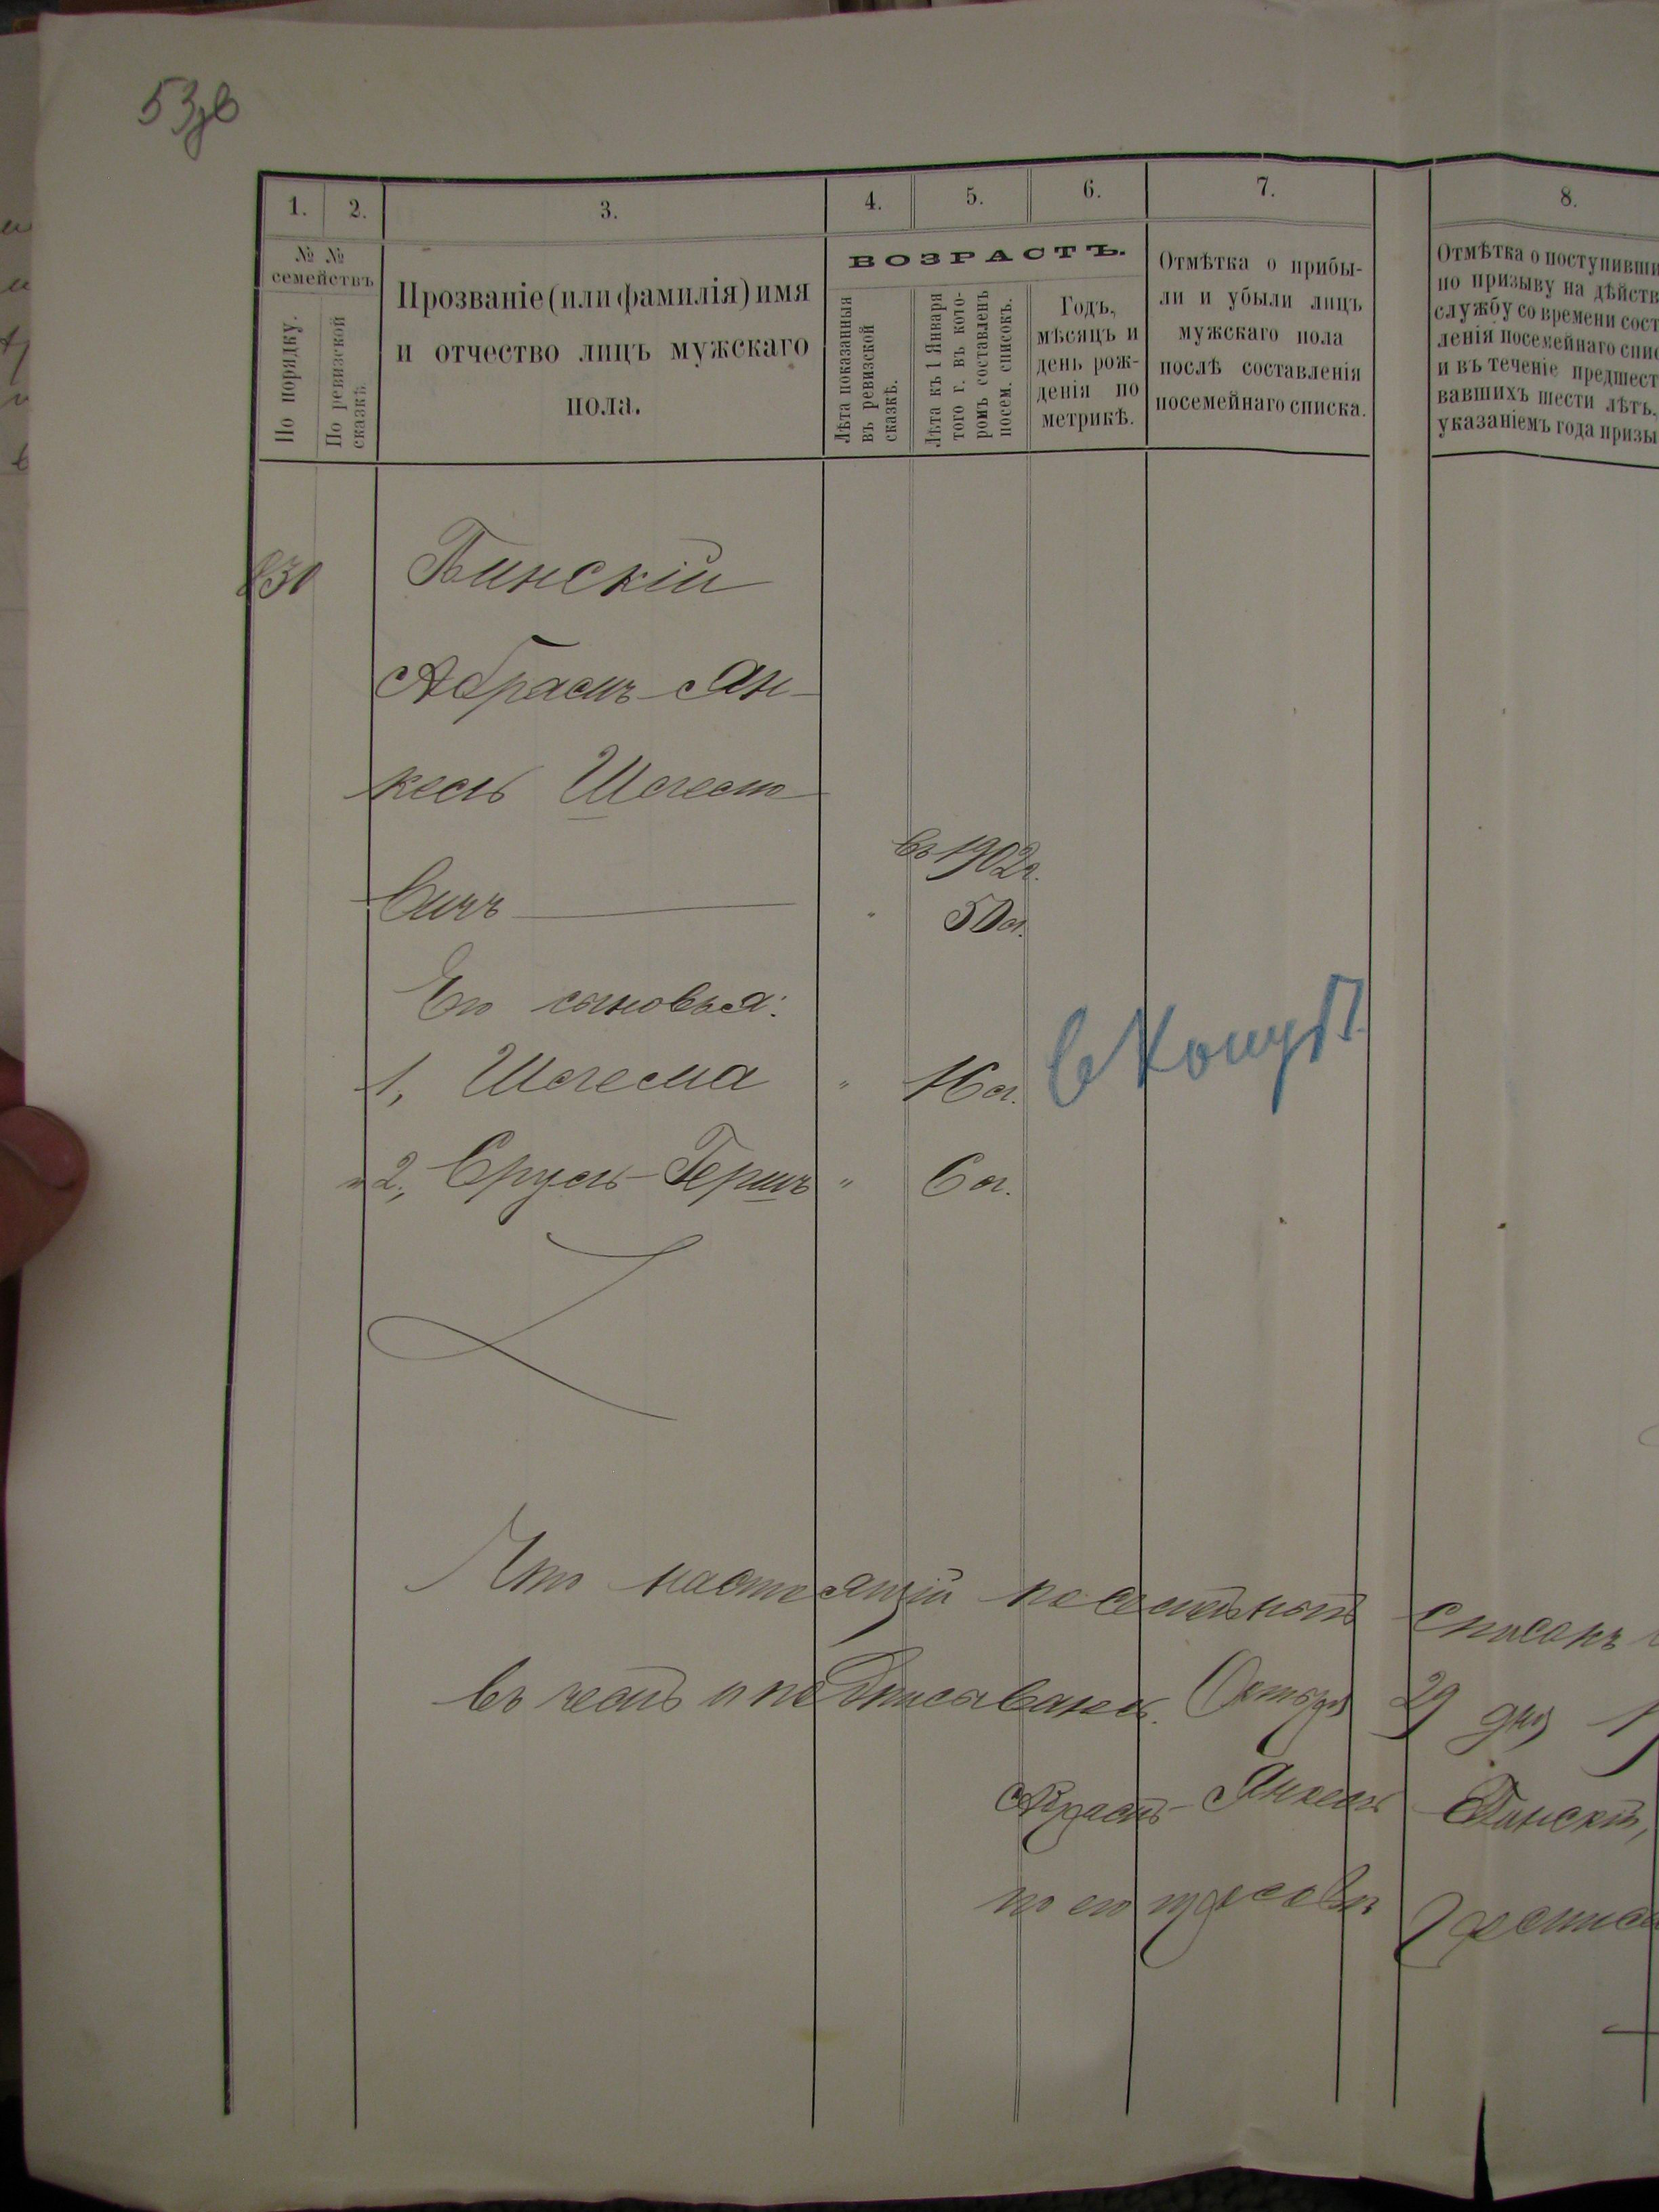 53
1. 2. 3. 4. 5. 6. 7. 8.
№ №
семействъ
По порядку.
По ревизской
сказкѣ.
Прозваніе (или фамилія) имя
и отчество лицъ мужскаго
пола.
ВОЗРАСТЪ.
Лѣта показанныя
въ ревизской
сказкѣ.
Лѣта къ 1 Января
того г. въ кото-
ромъ составленъ
посем. списокъ.
Годъ,
мѣсяцъ и
день рож-
денія по
метрикѣ.
Отмѣтка о прибы-
ли и убыли лицъ
мужскаго пола
послѣ составленія
посемейнаго списка.
Отмѣтка о поступивши
по призыву на дѣйств
службу со времени сост
ленія посемейнаго спис
и въ теченіе предшест
вавшихъ шести лѣтъ.
указаніемъ года призы
Абрамъ-Ян-
кель Шлемо-
въ 1902 г.
вичъ 50 л.
Его сыновья:
1, Шлема " 16 л.
2, Сруль-Гершъ " 6 л.
Что настоящій посемейный списокъ
въ чемъ и подписываюсь. 29 дня 1
Абрамъ-Янкель
по его просьбѣ